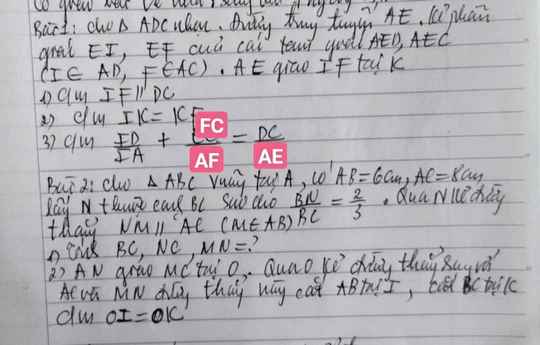 Bài 1: cho Δ ADC nhọn. Đường trung tuyến AE. Kẻ phân
giác EI, EF của các tam giác AED, AEC
(I ∈ AD, F ∈ AC). AE giao IF tại K
1) C/m IF // DC
2) c/m IK = KF
3) c/m ID/IA + FC/AF = DC/AE
Bài 2: cho Δ ABC vuông tại A, có AB = 6cm, AC = 8cm
lấy N thuộc cạnh BC sao cho BN/BC = 2/3. Qua N kẻ đường
thẳng NM // AC (M ∈ AB)
1) Tính BC, NC, MN = ?
2) AN giao MC tại O. Qua O kẻ đường thẳng
AC và MN đường thẳng này cắt AB tại I, cắt BC tại K
c/m OI = OK